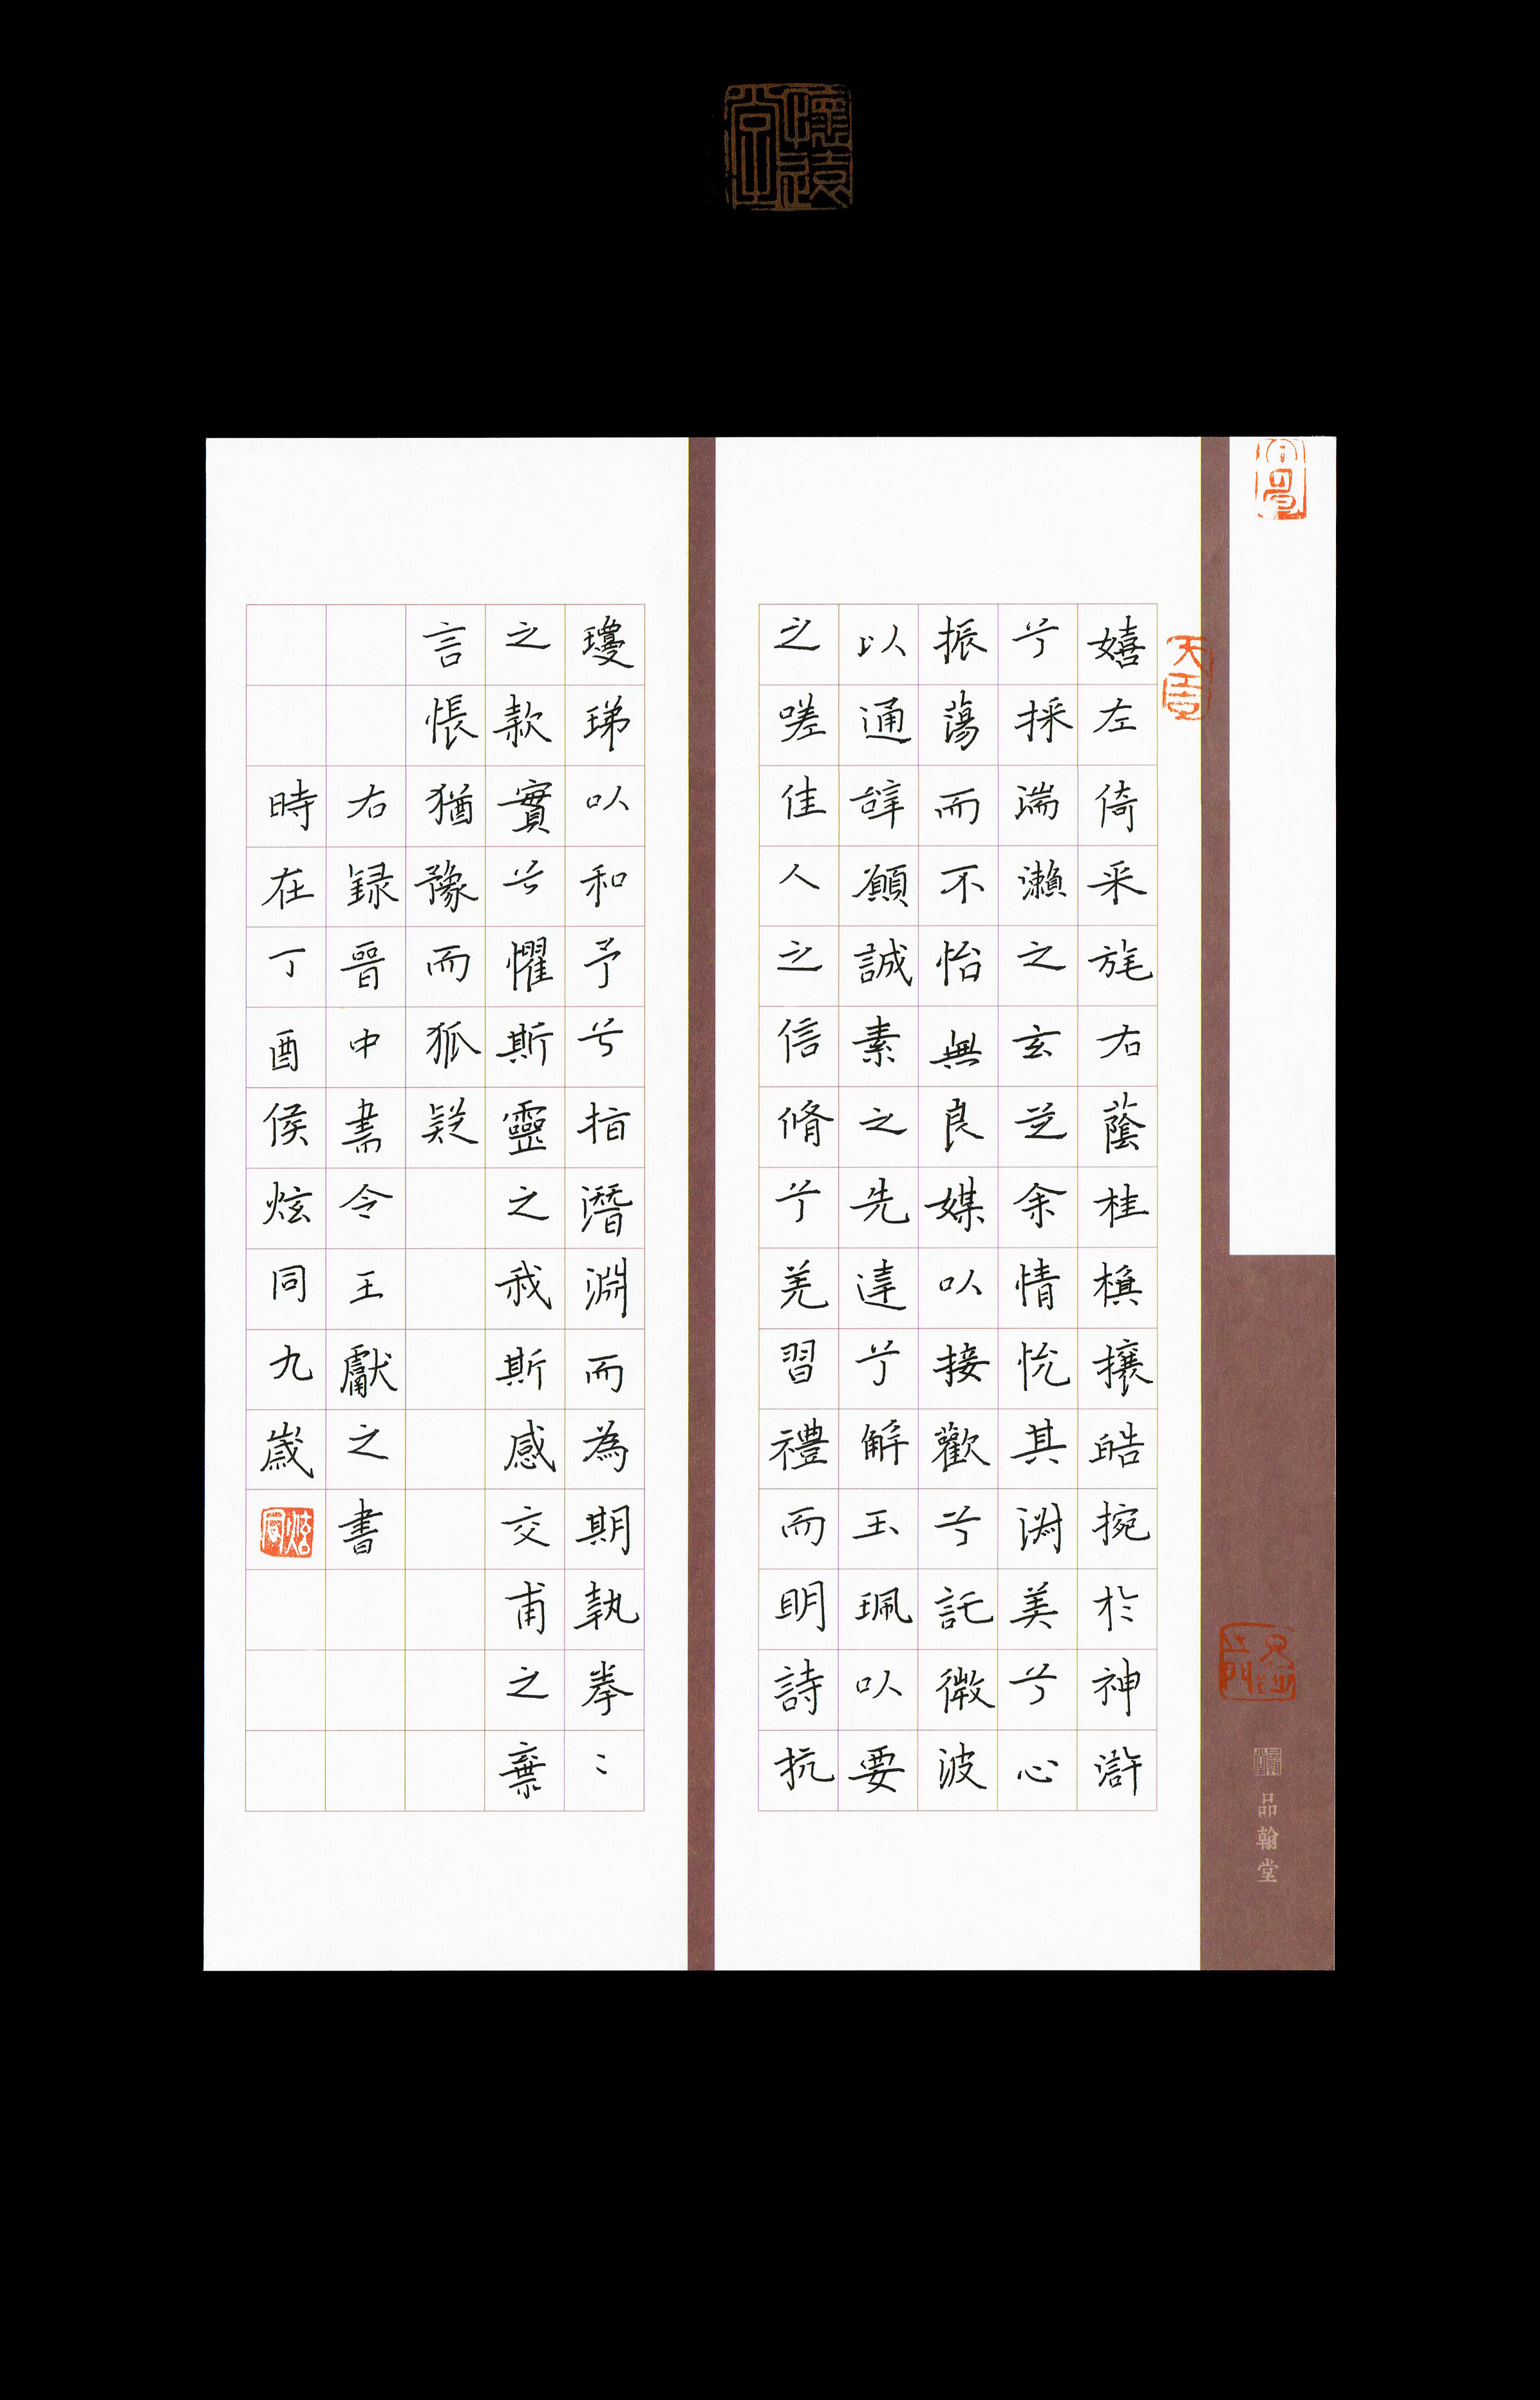 懷遠堂
品翰堂
嬉左倚采旄右蔭桂棋攘皓捥於神滸
兮採湍瀨之玄芝余情悅其淑美兮心
振蕩而不怡無良媒以接歡兮託微波
以通辭願誠素之先達兮解玉珮以要
之嗟佳人之信脩兮羌習禮而明詩抗
瓊珶以和予兮指潛淵而為期執拳〻
之款實兮懼斯靈之我斯感交甫之棄
言悵猶豫而狐疑
右録晉中書令王獻之書
時在丁酉侯炫同九歲
炫同